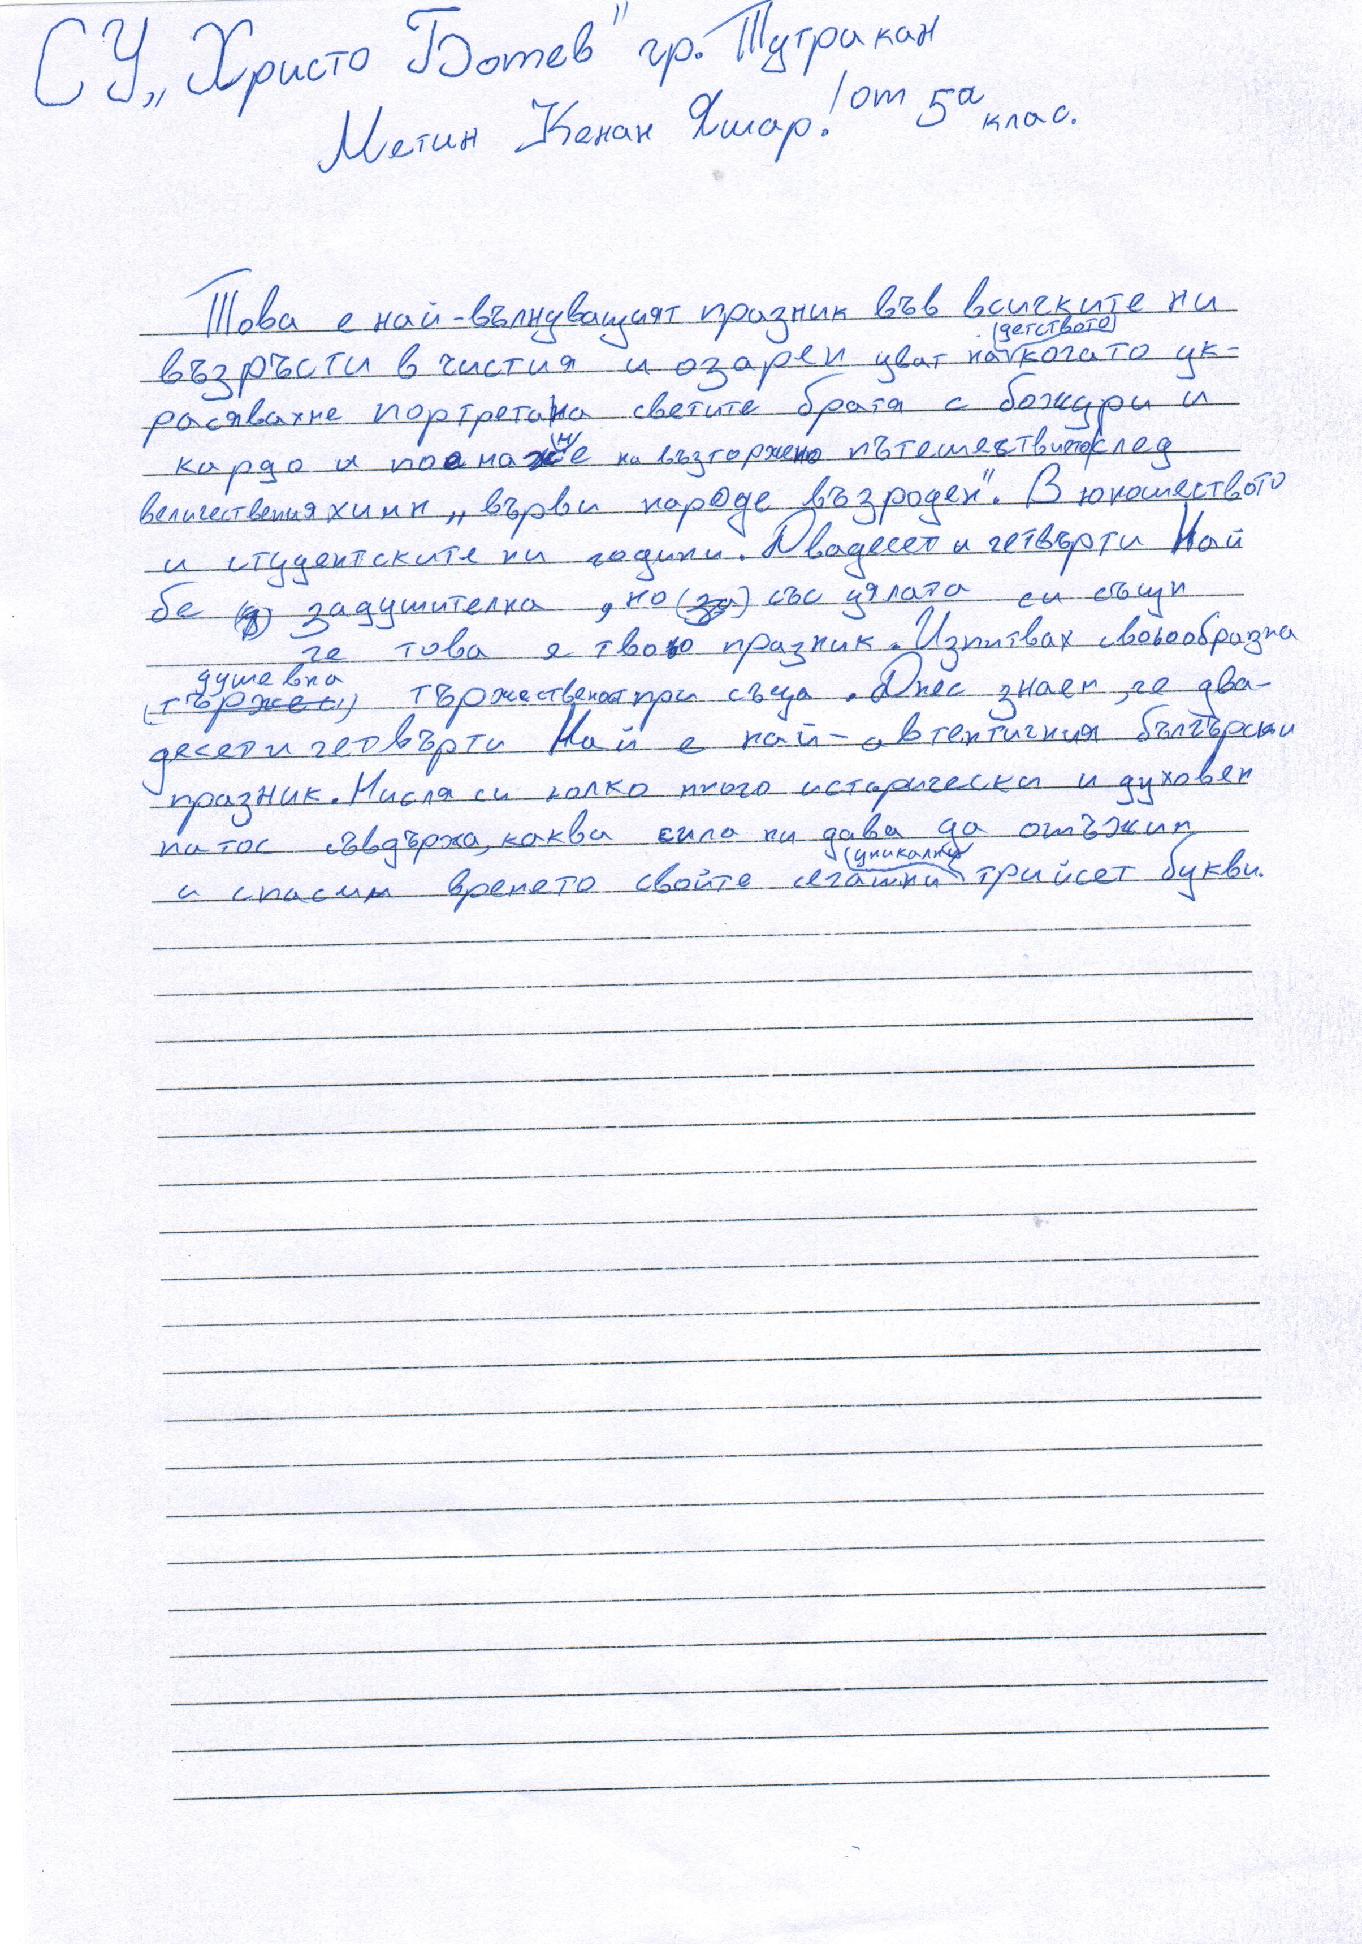 СУ „Христо Ботев" гр. Тутракан
Метин Кенан Яшар! от 5а клас.
Това е най-вълнуващият празник във всичките ни
(детството)
възръсти в чистия и озарен цват на когато ук-
расявахме портрета на светите братя с божури и
на възторжено пътешествието след
величествения химн „върви народе възроден". В юношеството
и студентските ни години. Двадесет и четвърти Май
бе задушителна, но (за) със цялата си същн
че това я твою празник. Изпитвах своьообразна
душевна
(тържес) тържественост при съща. Днес знаем, че два-
десет и четвърти Май е най-автентичния български
празник. Мисля си колко много исторически и духовен
патос съвдържа, каква сила ни дава да отъжим
(уникални)
и спасим времето свойте сегашни трийсет букви.